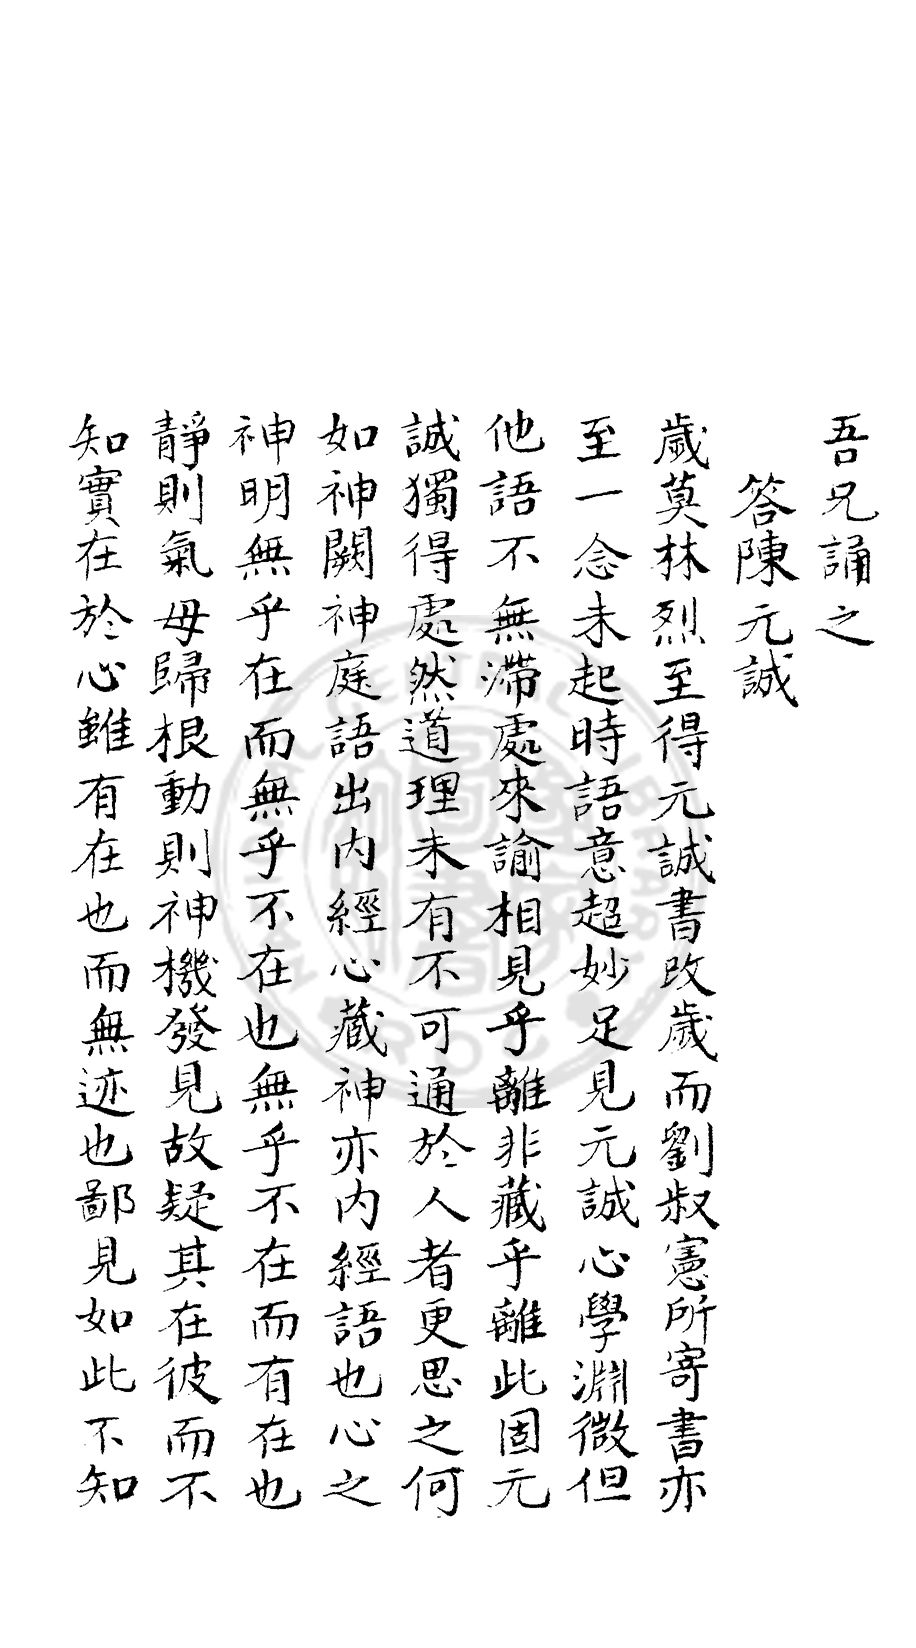 吾兄誦之
答陳元誠
歲莫林烈至得元誠書改歲而劉叔憲所寄書亦
至一念未起時語意超妙足見元誠心學淵微但
他語不無滯處來諭相見乎離非藏乎離此固元
誠獨得處然道理未有不可通於人者更思之何
如神闕神庭語出内經心藏神亦内經語也心之
神明無乎在而無乎不在也無乎不在而有在也
靜則氣母歸根動則神機發見故疑其在彼而不
知實在於心雖有在也而無迹也鄙見如此不知